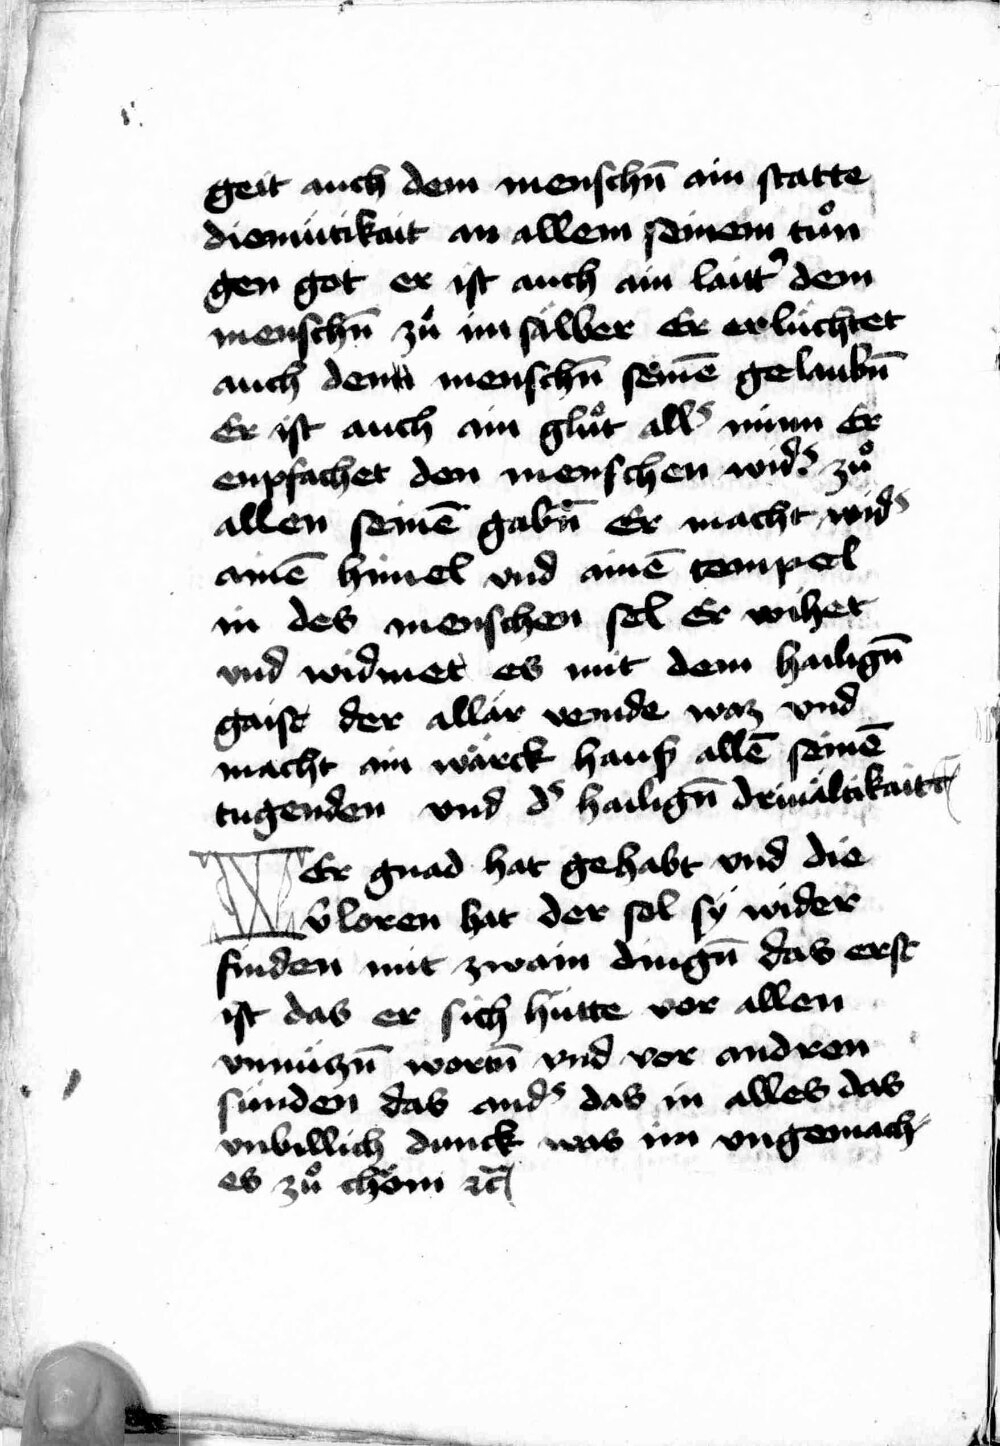 geit auch dem menschn̄ ain statte
diemütikait an allem seinem tůn
gen got er ist auch ain laitt᾿ dem
menschn̄ zů im sälber Er erlüchtet
auch dem menschn̄ seinē gelaubn̄
Er ist auch ain glůt all᾿ minn Er
enpfachet den menschen wid᾿ zů
allen seinē gabn̄ Er macht wid᾿
ainē himel vnd ainē tempel
in des menschen sel Er wihet
vnd widmet es mit dem hailign̄
gaist der allär vende waz vnd
macht ain wärck hauß allē seinē
tugenden vnd d᾿ hailign̄ driuältikait
WEr gnad hat gehabt vnd die
v̄loren hat der sol sÿ wider
finden mit zwain dingn̄ das erst
ist das er sich hütte vor allen
vnnüczn̄ wortn̄ vnd vor andren
sünden das and᾿ das in alles das
vnbillich dunck was im vngemach
es zů chöm ꝛc̄